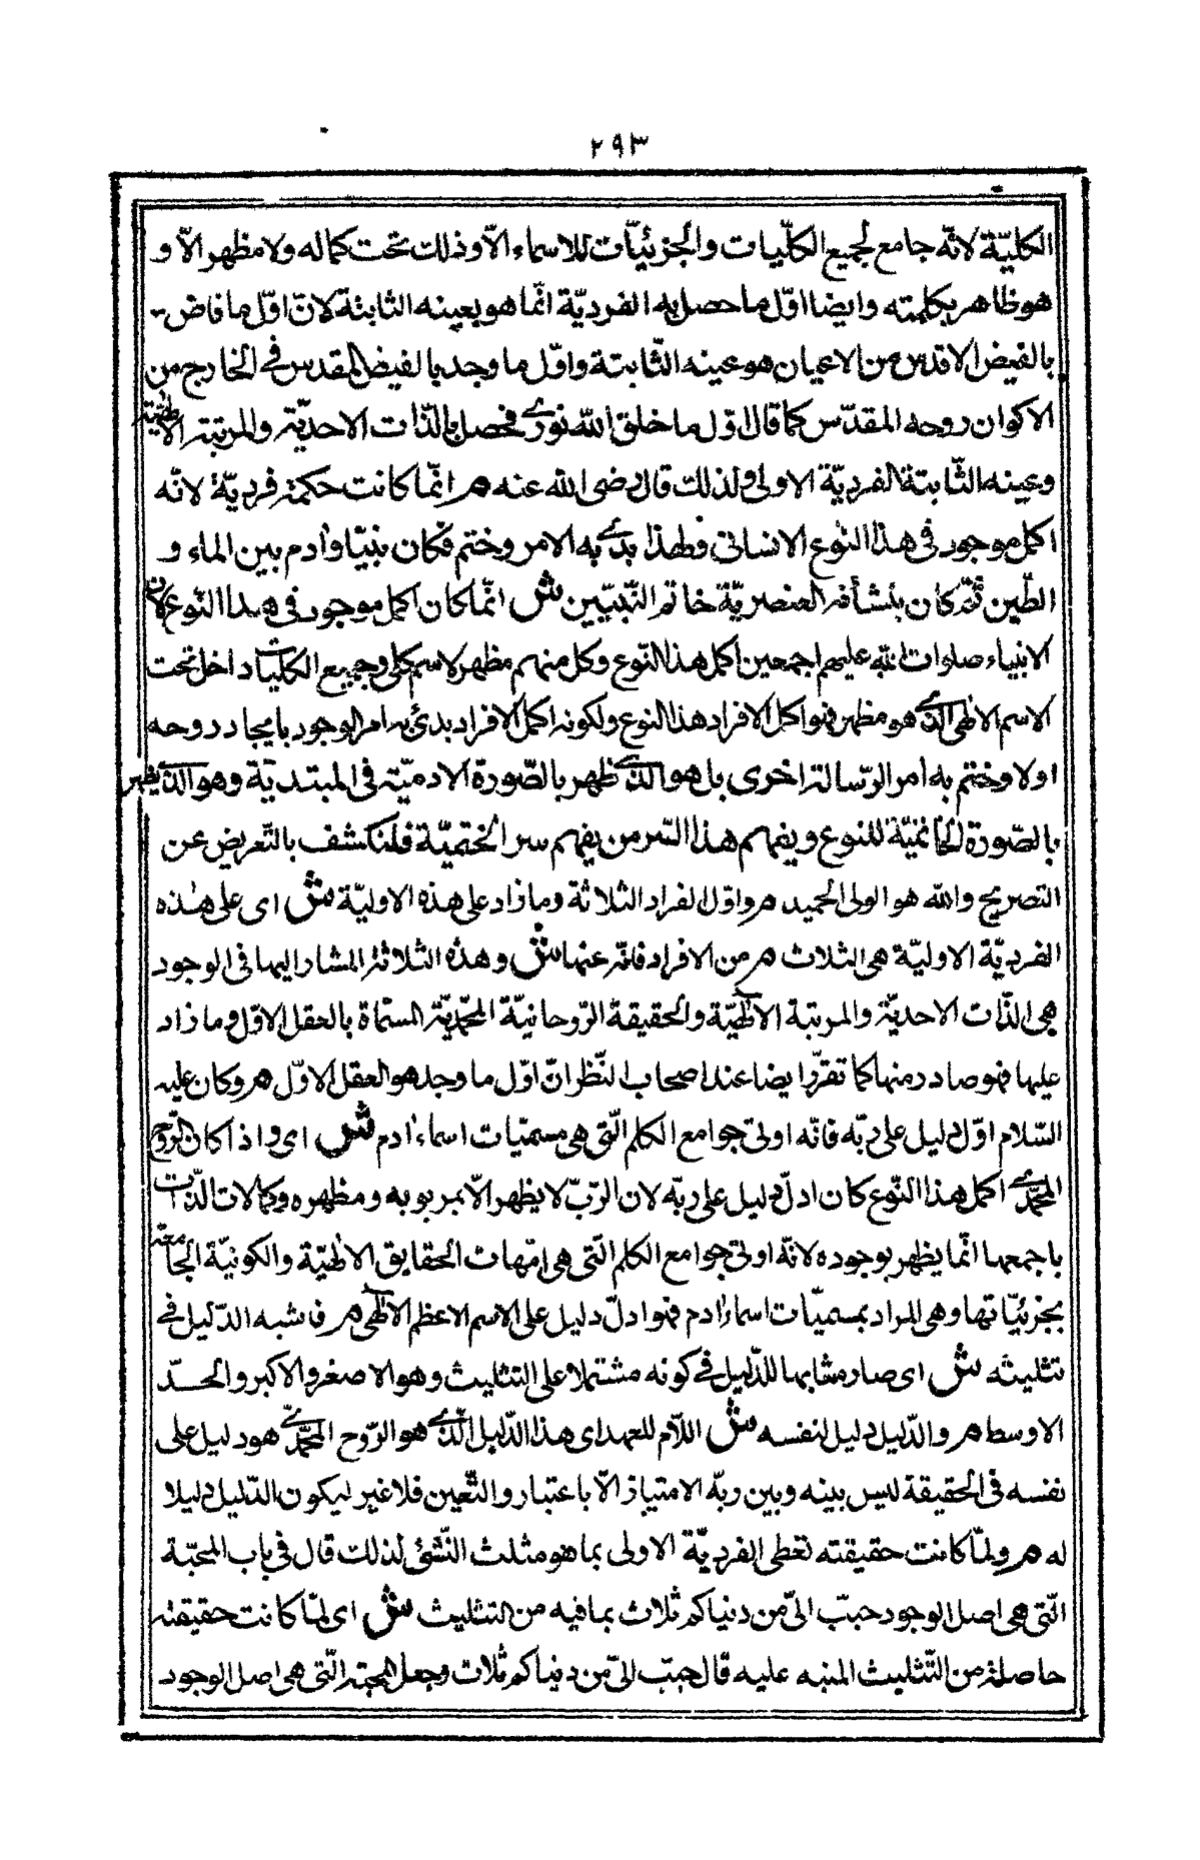 ٢٩٣
الكليّة لانّه جامع لجميع الكلّيات والجزئيّات للاسماء الّا وذلك تحت كماله ولا مظهر الّا و
هو ظاهر بكلمته وايضا اوّل ما حصل به الفرديّة انّما هو بعينه الثابتة لانّ اوّل ما فاض
بالفيض الاقدس من الاعيان هو عينه الثّابتة واوّل ما وجد بالفيض المقدس في الخارج من
الاكوان روحه المقدّس كما قال اوّل ما خلق الله نوري فحصل بالذّات الاحديّة والمرتبة الالٰهيّة
وعينه الثّابتة الفرديّة الاولى ولذلك قال رضى الله عنه هر انّما كانت حكمة فرديّة لانّه
اكمل موجود في هذا النوع الانسانى فلهذا بدئ به الامر وختم فكان نبيّا وآدم بين الماء و
الطّين ثمّ كان بنشأته العنصريّة خاتم النّبيّين ش انّما كان اكمل موجود في هذا النّوع لانّ
الانبياء صلوات الله عليهم اجمعين اكمل هذا النّوع وكل منهم مظهر لاسم كلى وجميع الكليات داخل تحت
الاسم الالٰهى الّذي هو مظهره فهو اكمل الافراد هذا النوع ولكونه اكمل الافراد بدئ به امر الوجود بايجاد روحه
اولا وختم به امر الرّسالة اخرى بل هو الّذي ظهر بالصّورة الادميّة في المبتدئيّة وهو الّذي يظهر
بالصّورة الخاتميّة للنوع ويفهم هذا السّر من يفهم سر الختميّة فلنكشف بالتّعريض عن
التصريح والله هو الولى الحميد هر واوّل الفراد الثلاثة وما زاد على هذه الاوليّة ش اى على هذه
الفرديّة الاوليّة هى الثلاث هر من الافراد فانّه عنها ش وهذه الثلاثة المشار اليها في الوجود
هى الذّات الاحديّة والمرتبة الالٰهيّة والحقيقة الرّوحانيّة المحمّديّة المسمّاة بالعقل الاوّل وما زاد
عليها فهو صادر منها كما تقرّر ايضا عند اصحاب النّظر انّ اوّل ما وجد هو العقل الاوّل هر وكان عليه
السّلام اوّل دليل على ربّه فانّه اوتى جوامع الكلم الّتى هى مسميّات اسماء ادم ش اى واذا كان الرّوح
المحمّدي اكمل هذا النّوع كان ادلّ دليل على ربّه لان الرّبّ لا يظهر الّا بمربوبه ومظهره وكمالات الذّات
باجمعها انّما يظهر بوجوده لانّه اوتى جوامع الكلم الّتى هى امّهات الحقايق الالٰهيّة والكونيّة الجامعة
بجزئيّاتها وهى المراد بمسميّات اسماء ادم فهو ادلّ دليل على الاسم الاعظم الالٰهى هر فاشبه الدّليل في
تثليثه ش اى صار مشابها للدّليل في كونه مشتملا على التثليث وهو الاصغر والاكبر والحدّ
الاوسط هر والدّليل دليل لنفسه ش اللاّم للعهد اى هذا الدّليل الّذي هو الرّوح المحمّدي هو دليل على
نفسه في الحقيقة ليس بينه وبين ربّه الامتياز الّا باعتبار والتّعين فلا غير ليكون الدّليل دليلا
له هر ولمّا كانت حقيقته تعطى الفرديّة الاولى بما هو مثلث النّشئ لذلك قال في باب المحبّة
الّتى هى اصل الوجود حبّب الىّ من دنياكم ثلاث بما فيه من التثليث ش اى لمّا كانت حقيقته
حاصلة من التّثليث المنبه عليه قال حبّب الىّ من دنياكم ثلاث وجعل المحبّة الّتى هى اصل الوجود